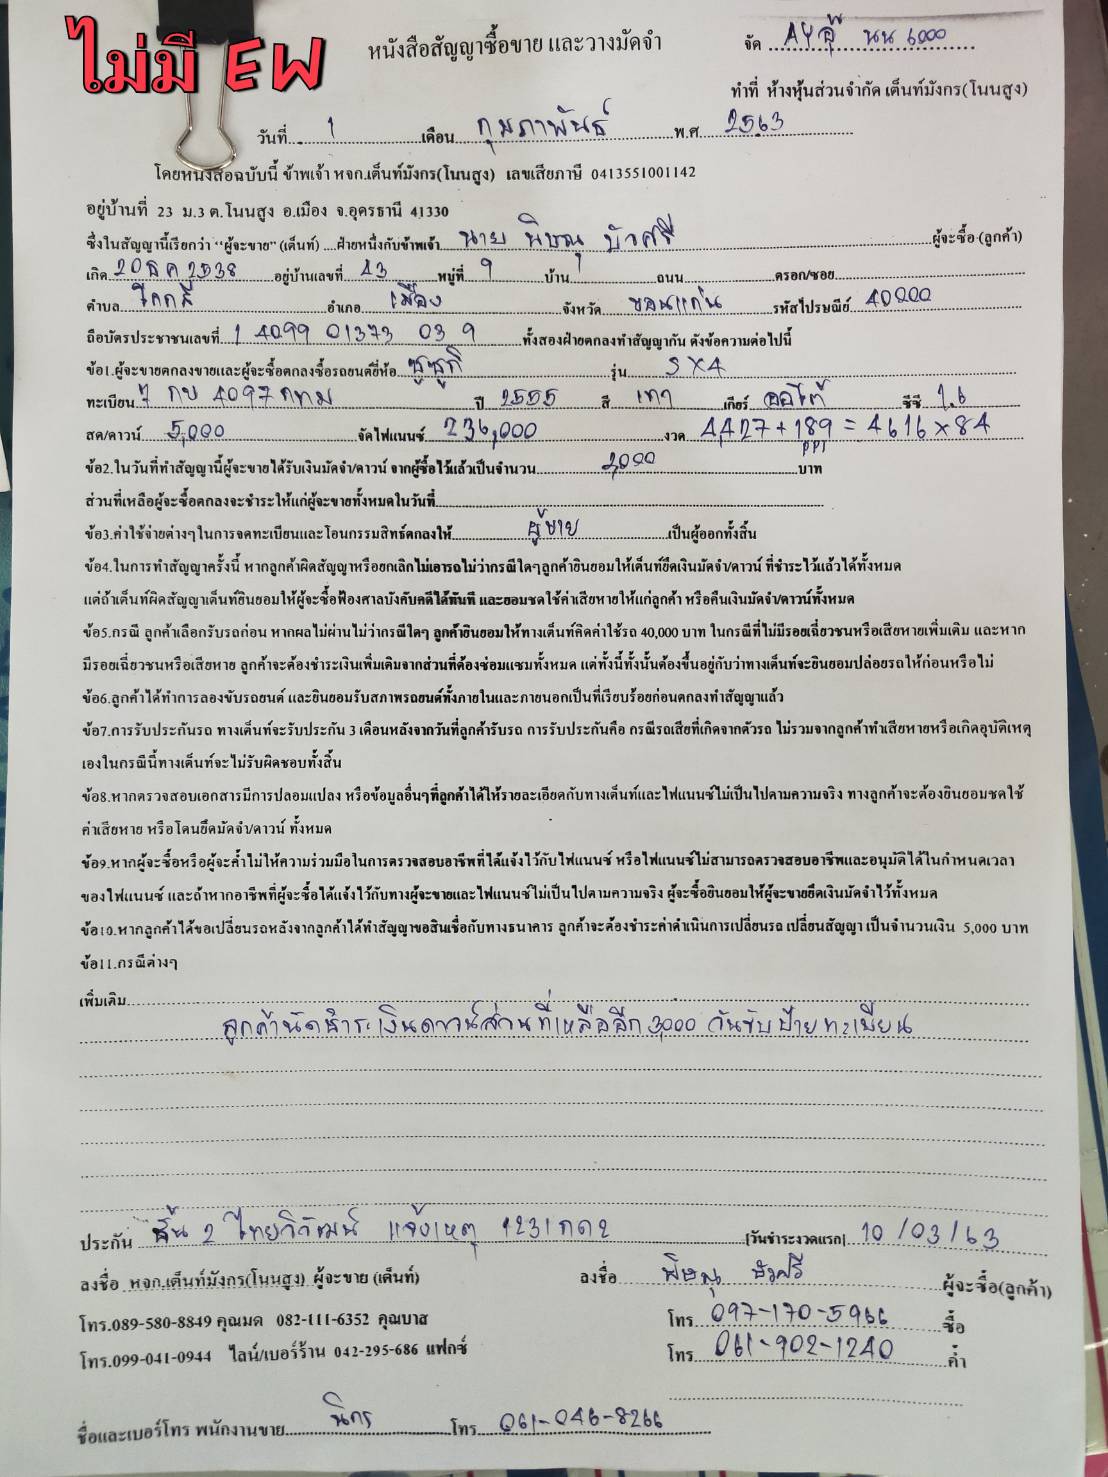 ไม่มี EW
หนังสือสัญญาซื้อขาย และวางมัดจำ
จัด AY อู๊ นน 6000
ทำที่ ห้างหุ้นส่วนจำกัด เต็นท์มังกร(โนนสูง)
วันที่ 1 เดือน กุมภาพันธ์ พ.ศ. 2563
โดยหนังสือฉบับนี้ ข้าพเจ้า หจก.เต็นท์มังกร(โนนสูง) เลขเสียภาษี 0413551001142
อยู่บ้านที่ 23 ม.3 ต.โนนสูง อ.เมือง จ.อุดรธานี 41330
ซึ่งในสัญญานี้เรียกว่า "ผู้จะขาย" (เต็นท์) ....ฝ่ายหนึ่งกับข้าพเจ้า นาย พิษณุ บัวศรี ผู้จะซื้อ (ลูกค้า)
เกิด 20 ธค 2538 อยู่บ้านเลขที่ 43 หมู่ที่ 9 บ้าน ถนน ตรอก/ซอย
ตำบล โคกสี อำเภอ เมือง จังหวัด ขอนแก่น รหัสไปรษณีย์ 40000
ถือบัตรประชาชนเลขที่ 1 4099 01373 03 9 ทั้งสองฝ่ายตกลงทำสัญญากัน ดังข้อความต่อไปนี้
ข้อ1.ผู้จะขายตกลงขายและผู้จะซื้อตกลงซื้อรถยนต์ยี่ห้อ ซูซูกิ รุ่น SX4
ทะเบียน 7 กบ 4097 กทม ปี 2555 สี เทา เกียร์ ออโต้ ซีซี 1.6
สด/ดาวน์ 5,000 จัดไฟแนนซ์ 236,000 งวด 4,427 + 189 = 4616 x 84
PPI
ข้อ2.ในวันที่ทำสัญญานี้ผู้จะขายได้รับเงินมัดจำ/ดาวน์ จากผู้ซื้อไว้แล้วเป็นจำนวน 2,000 บาท
ส่วนที่เหลือผู้จะซื้อตกลงจะชำระให้แก่ผู้จะขายทั้งหมดในวันที่
ข้อ3.ค่าใช้จ่ายต่างๆในการจดทะเบียนและโอนกรรมสิทธิ์ตกลงให้ ผู้ขาย เป็นผู้ออกทั้งสิ้น
ข้อ4.ในการทำสัญญาครั้งนี้ หากลูกค้าผิดสัญญาหรือยกเลิกไม่เอารถไม่ว่ากรณีใดๆลูกค้ายินยอมให้เต็นท์ยึดเงินมัดจำ/ดาวน์ ที่ชำระไว้แล้วได้ทั้งหมด
แต่ถ้าเต็นท์ผิดสัญญาเต็นท์ยินยอมให้ผู้จะซื้อฟ้องศาลบังคับคดีได้ทันที และยอมชดใช้ค่าเสียหายให้แก่ลูกค้า หรือคืนเงินมัดจำ/ดาวน์ทั้งหมด
ข้อ5.กรณี ลูกค้าเลือกรับรถก่อน หากผลไม่ผ่านไม่ว่ากรณีใดๆ ลูกค้ายินยอมให้ทางเต็นท์คิดค่าใช้รถ 40,000 บาท ในกรณีที่ไม่มีรอยเฉี่ยวชนหรือเสียหายเพิ่มเติม และหาก
มีรอยเฉี่ยวชนหรือเสียหาย ลูกค้าจะต้องชำระเงินเพิ่มเติมจากส่วนที่ต้องซ่อมแซมทั้งหมด แต่ทั้งนี้ทั้งนั้นต้องขึ้นอยู่กับว่าทางเต็นท์จะยินยอมปล่อยรถให้ก่อนหรือไม่
ข้อ6.ลูกค้าได้ทำการลองขับรถยนต์ และยินยอมรับสภาพรถยนต์ทั้งภายในและภายนอกเป็นที่เรียบร้อยก่อนตกลงทำสัญญาแล้ว
ข้อ7.การรับประกันรถ ทางเต็นท์จะรับประกัน 3 เดือนหลังจากวันที่ลูกค้ารับรถ การรับประกันคือ กรณีรถเสียที่เกิดจากตัวรถ ไม่รวมจากลูกค้าทำเสียหายหรือเกิดอุบัติเหตุ
เองในกรณีนี้ทางเต็นท์จะไม่รับผิดชอบทั้งสิ้น
ข้อ8.หากตรวจสอบเอกสารมีการปลอมแปลง หรือข้อมูลอื่นๆที่ลูกค้าได้ให้รายละเอียดกับทางเต็นท์และไฟแนนซ์ไม่เป็นไปตามความจริง ทางลูกค้าจะต้องยินยอมชดใช้
ค่าเสียหาย หรือโดนยึดมัดจำ/ดาวน์ ทั้งหมด
ข้อ9.หากผู้จะซื้อหรือผู้จะค้ำไม่ให้ความร่วมมือในการตรวจสอบอาชีพที่ได้แจ้งไว้กับไฟแนนซ์ หรือไฟแนนซ์ไม่สามารถตรวจสอบอาชีพและอนุมัติได้ในกำหนดเวลา
ของไฟแนนซ์ และถ้าหากอาชีพที่ผู้จะซื้อได้แจ้งไว้กับทางผู้จะขายและไฟแนนซ์ไม่เป็นไปตามความจริง ผู้จะซื้อยินยอมให้ผู้จะขายยึดเงินมัดจำไว้ทั้งหมด
ข้อ10.หากลูกค้าได้ขอเปลี่ยนรถหลังจากลูกค้าได้ทำสัญญาขอสินเชื่อกับทางธนาคาร ลูกค้าจะต้องชำระค่าดำเนินการเปลี่ยนรถ เปลี่ยนสัญญา เป็นจำนวนเงิน 5,000 บาท
ข้อ11.กรณีต่างๆ
เพิ่มเติม
ลูกค้านัดชำระเงินดาวน์ส่วนที่เหลืออีก 3,000 วันขับป้ายทะเบียน
ประกัน ชั้น 2 ไทยวิวัฒน์ แจ้งเหตุ 1231 กด 2 [วันชำระงวดแรก] 10 / 03 / 63
ลงชื่อ หจก.เต็นท์มังกร(โนนสูง) ผู้จะขาย (เต็นท์) ลงชื่อ พิษณุ บัวศรี ผู้จะซื้อ(ลูกค้า)
โทร.089-580-8849 คุณมด 082-111-6352 คุณบาส โทร 097-170-5966 ซื้อ
โทร.099-041-0944 ไลน์/เบอร์ร้าน 042-295-686 แฟกซ์ โทร 061-902-1240 ค้ำ
ชื่อและเบอร์โทร พนักงานขาย นิกร โทร 061-046-8266